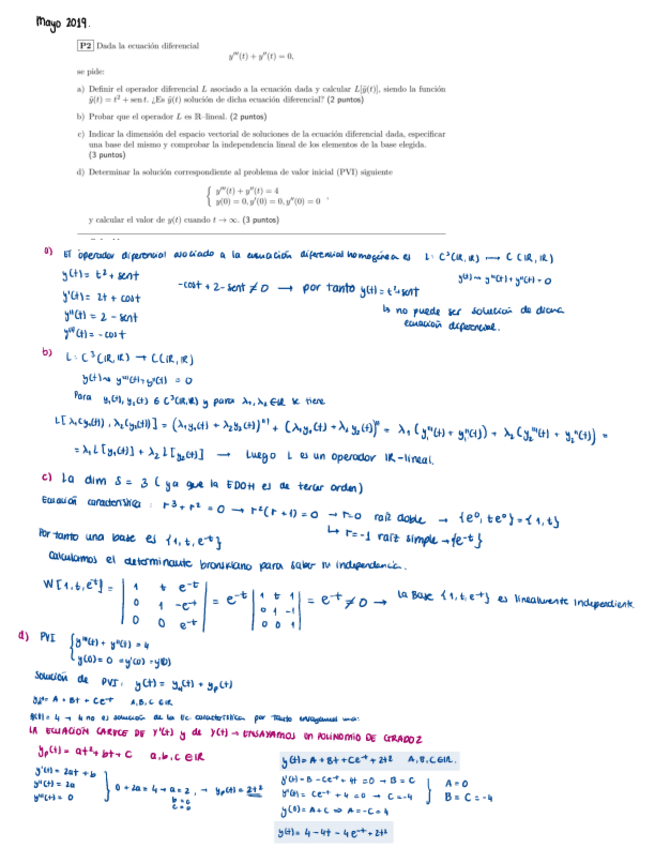 Mayo 2019.
P2 Dada la ecuación diferencial
y'''(t) + y''(t) = 0,
se pide:
a) Definir el operador diferencial L asociado a la ecuación dada y calcular L[ŷ(t)], siendo la función
ŷ(t) = t² + sen t. ¿Es ŷ(t) solución de dicha ecuación diferencial? (2 puntos)
b) Probar que el operador L es ℝ-lineal. (2 puntos)
c) Indicar la dimensión del espacio vectorial de soluciones de la ecuación diferencial dada, especificar
una base del mismo y comprobar la independencia lineal de los elementos de la base elegida.
(3 puntos)
d) Determinar la solución correspondiente al problema de valor inicial (PVI) siguiente
y'''(t) + y''(t) = 4
y(0) = 0, y'(0) = 0, y''(0) = 0 ,
y calcular el valor de y(t) cuando t → ∞. (3 puntos)
a) El operador diferencial asociado a la ecuación diferencial homogénea es L: C³(IR,IR) → C(IR,IR)
y(t) → y'''(t) + y''(t) = 0
y(t) = t² + sent
y'(t) = 2t + cost
y''(t) = 2 - sent
y'''(t) = -cost
-cost + 2 - sent ≠ 0 → por tanto y(t) = t² + sent
↳ no puede ser solución de dicha
ecuación diferencial.
b) L: C³(IR,IR) → C(IR,IR)
y(t) → y'''(t) + y''(t) = 0
Para y₁(t), y₂(t) ∈ C³(IR,IR) y para λ₁, λ₂ ∈ IR se tiene
L[λ₁(y₁(t)), λ₂(y₂(t))] = (λ₁y₁(t) + λ₂y₂(t))''' + (λ₁y₁(t) + λ₂y₂(t))'' = λ₁(y₁'''(t) + y₁''(t)) + λ₂(y₂'''(t) + y₂''(t)) =
= λ₁L[y₁(t)] + λ₂L[y₂(t)] → Luego L es un operador IR-lineal.
c) La dim S = 3 (ya que la EDOH es de tercer orden)
Ecuación característica: r³ + r² = 0 → r²(r+1) = 0 → r=0 raíz doble → {e⁰, te⁰} = {1, t}
↳ r=-1 raíz simple → {e⁻ᵗ}
Por tanto una base es {1, t, e⁻ᵗ}
Calculamos el determinante bronskiano para saber su independencia.
W[1, t, e⁻ᵗ] = | 1 t e⁻ᵗ | = e⁻ᵗ | 1 t 1 | = e⁻ᵗ ≠ 0 → La Base {1, t, e⁻ᵗ} es linealmente independiente
| 0 1 -e⁻ᵗ | | 0 1 -1 |
| 0 0 e⁻ᵗ | | 0 0 1 |
d) PVI { y'''(t) + y''(t) = 4
y(0) = 0 = y'(0) = y''(0)
Solución de PVI: y(t) = yₕ(t) + yₚ(t)
yₕ = A + Bt + Ce⁻ᵗ A,B,C ∈ IR
= 4 → 4 no es solución de la Ec. característica por tanto ensayamos una:
LA ECUACIÓN CARECE DE y'(t) y de y(t) → ENSAYAMOS un POLINOMIO DE GRADO 2
yₚ(t) = at² + bt + c a,b,c ∈ IR
y'(t) = 2at + b
y''(t) = 2a
y'''(t) = 0
0 + 2a = 4 → a = 2, → yₚ(t) = 2t²
b=0
c=0
y(t) = A + Bt + Ce⁻ᵗ + 2t² A,B,C ∈ IR.
y'(t) = B - Ce⁻ᵗ + 4t = 0 → B = C
y''(t) = Ce⁻ᵗ + 4 = 0 → C = -4
y(0) = A + C ⇒ A = -C = 4
A = 0
B = C = -4
y(t) = 4 - 4t - 4e⁻ᵗ + 2t²